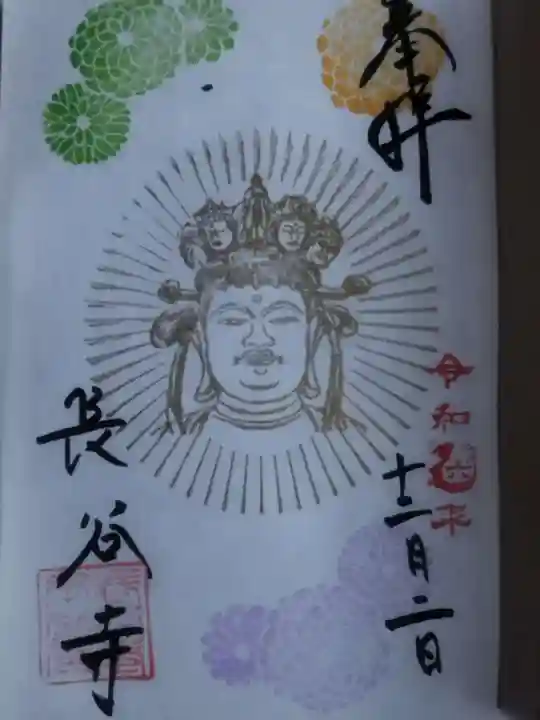 奉拝
令和六年
十二月二日
長谷寺